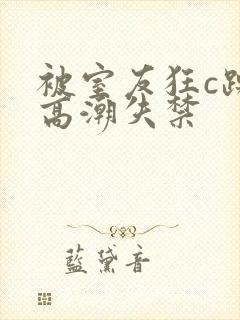 被室友狂c跪
高潮失禁
藍黛音